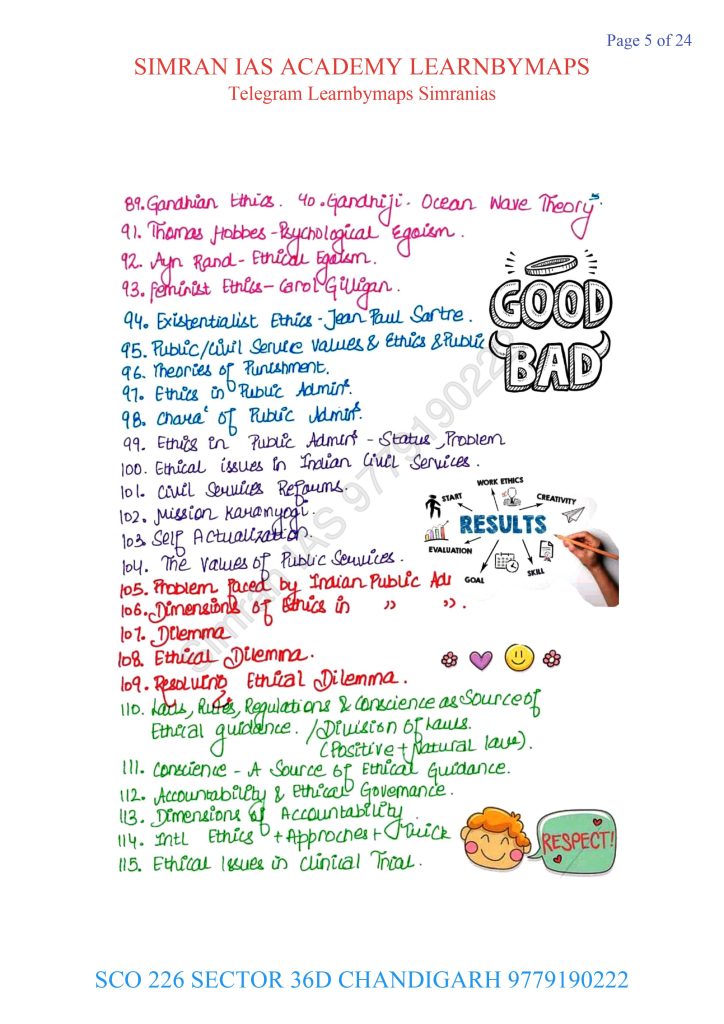 Page 5 of 24
SIMRAN IAS ACADEMY LEARNBYMAPS
Telegram Learnbymaps Simranias
89. Gandhian Ethics. 40. Gandhiji - Ocean Wave Theory.
91. Thomas Hobbes - Psychological Egoism.
92. Ayn Rand - Ethical Egoism.
93. Feminist Ethics - Carol Gilligan.
94. Existentialist Ethics - Jean Paul Sartre.
95. Public/Civil Service Values & Ethics & Public
96. Theories of Punishment.
97. Ethics in Public Admin.
98. Chara' of Public Admin.
99. Ethics in Public Admin - Status, Problem
100. Ethical issues in Indian Civil Services.
101. Civil Services Reforms.
102. Mission Karamyogi.
103. Self Actualization.
104. The values of Public Services.
105. Problem faced by Indian Public Ad
106. Dimensions of Ethics in " ".
107. Dilemma
108. Ethical Dilemma.
109. Resolving Ethical Dilemma.
110. Laws, Rules, Regulations & Conscience as Source of
Ethical guidance. /Division of Laws.
(Positive + Natural law).
111. Conscience - A Source of Ethical Guidance.
112. Accountability & Ethical Governance.
113. Dimensions of Accountability
114. Intl Ethics + Approches +
115. Ethical Issues in Clinical Trial.
GOOD
BAD
WORK ETHICS
START
CREATIVITY
RESULTS
EVALUATION
GOAL
SKILL
RESPECT!
Simran IAS 9779190222
SCO 226 SECTOR 36D CHANDIGARH 9779190222